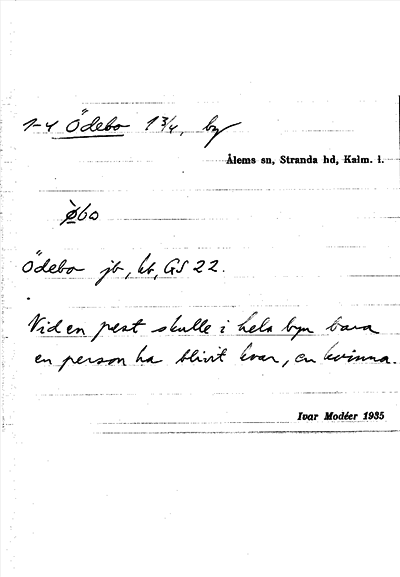 1-4 Ödebo 1 3/4, by
Ålems sn, Stranda hd, Kalm. l.
Ödebo jb, kb, GS 22.
Vid en pest skulle i hela byn bara
en person ha blivit kvar, en kvinna.
Ivar Modéer 1935